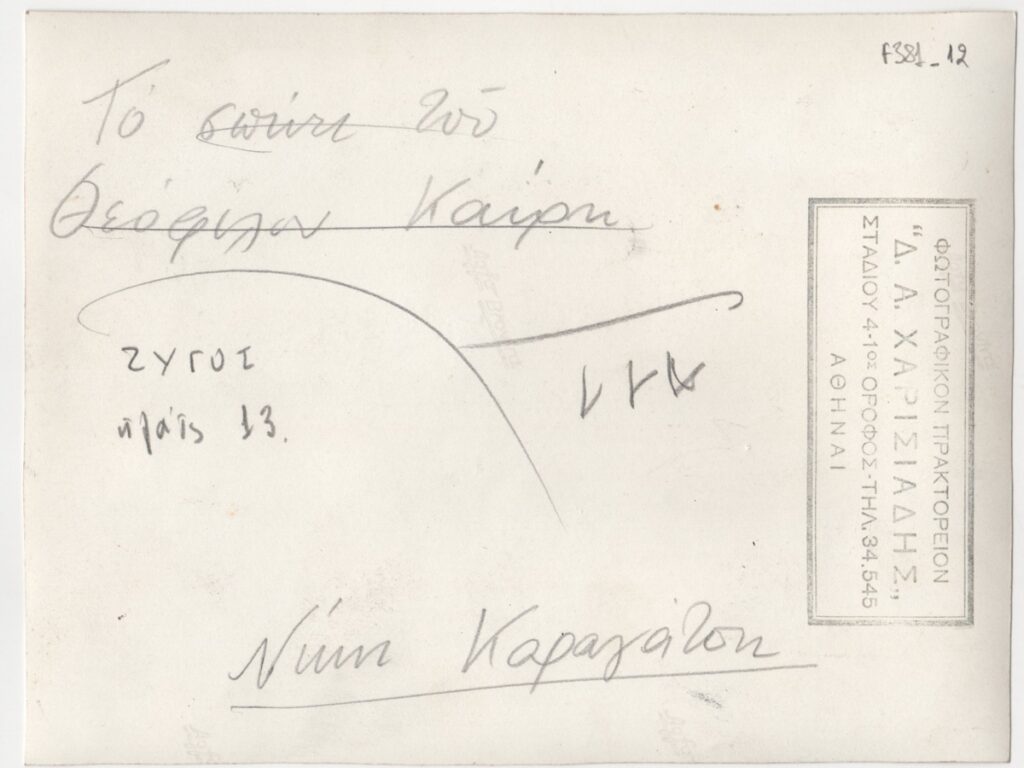 F381_12
Τό σπίτι τοῦ
Θεόφιλου Καΐρη
ΖΥΓΟΣ
13.
Νίκη Καραγάτση
ΦΩΤΟΓΡΑΦΙΚΟΝ ΠΡΑΚΤΟΡΕΙΟΝ
“Δ. Α. ΧΑΡΙΣΙΑΔΗΣ„
ΣΤΑΔΙΟΥ 4-1ος ΟΡΟΦΟΣ-ΤΗΛ. 34.545
ΑΘΗΝΑΙ